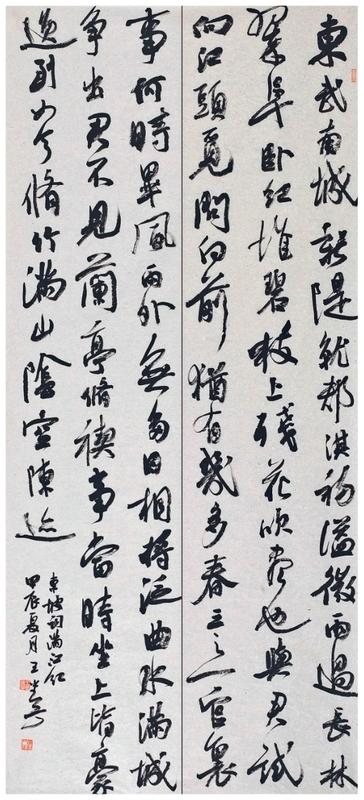 東武南城新隄就淇初溢微雨過長林
翠阜卧紅堆碧枝上殘花吹盡也與君試
向江頭覓問向前猶有幾多春三之一官裏
事何時畢風雨外無多日相將泛曲水滿城
爭出君不見蘭亭脩禊事當時坐上皆豪
逸到如今脩竹滿山陰空陳迹
東坡詞滿江紅
甲辰夏月王